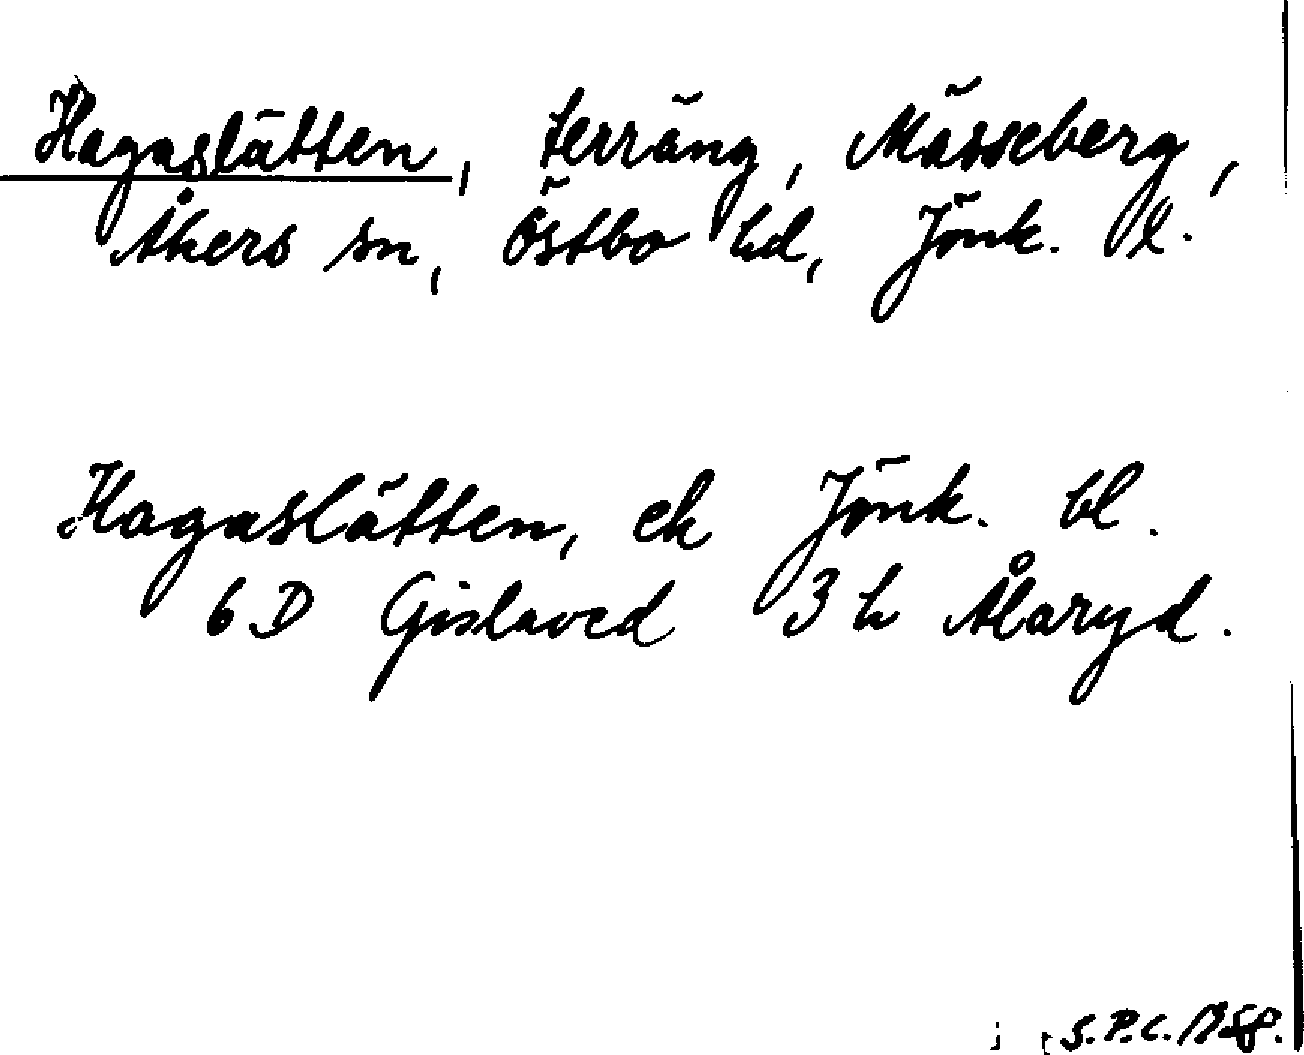 Hagaslätten, terräng, Mässeberg,
Åkers sn, Östbo hd, Jönk. l.
Hagaslätten, ek Jönk. bl.
6D Gislaved 3h Ålaryd.
S.P.C.